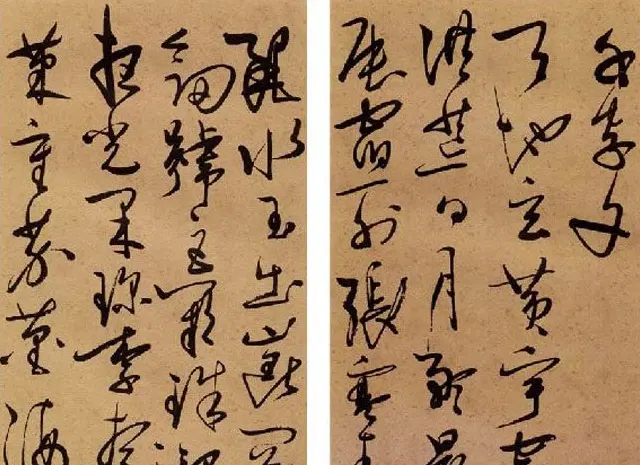 千字文
天地玄黃宇宙
洪荒日月盈昃
辰宿列張寒來
麗水玉出崑岡
劍號巨闕珠稱
夜光果珍李柰
菜重芥薑海